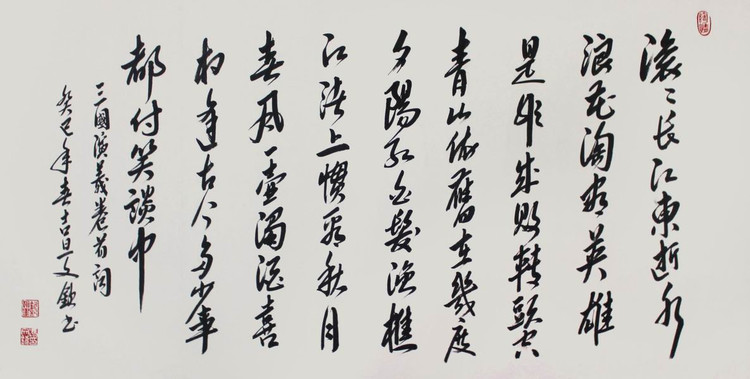 滚〻长江東逝水
浪花淘尽英雄
是非成败转頭空
青山依舊在幾度
夕陽红白髮渔樵
江渚上惯看秋月
春风一壶濁酒喜
相逢古今多少事
都付笑談中
三國演義卷首詞
癸巳年春吉日文钦书